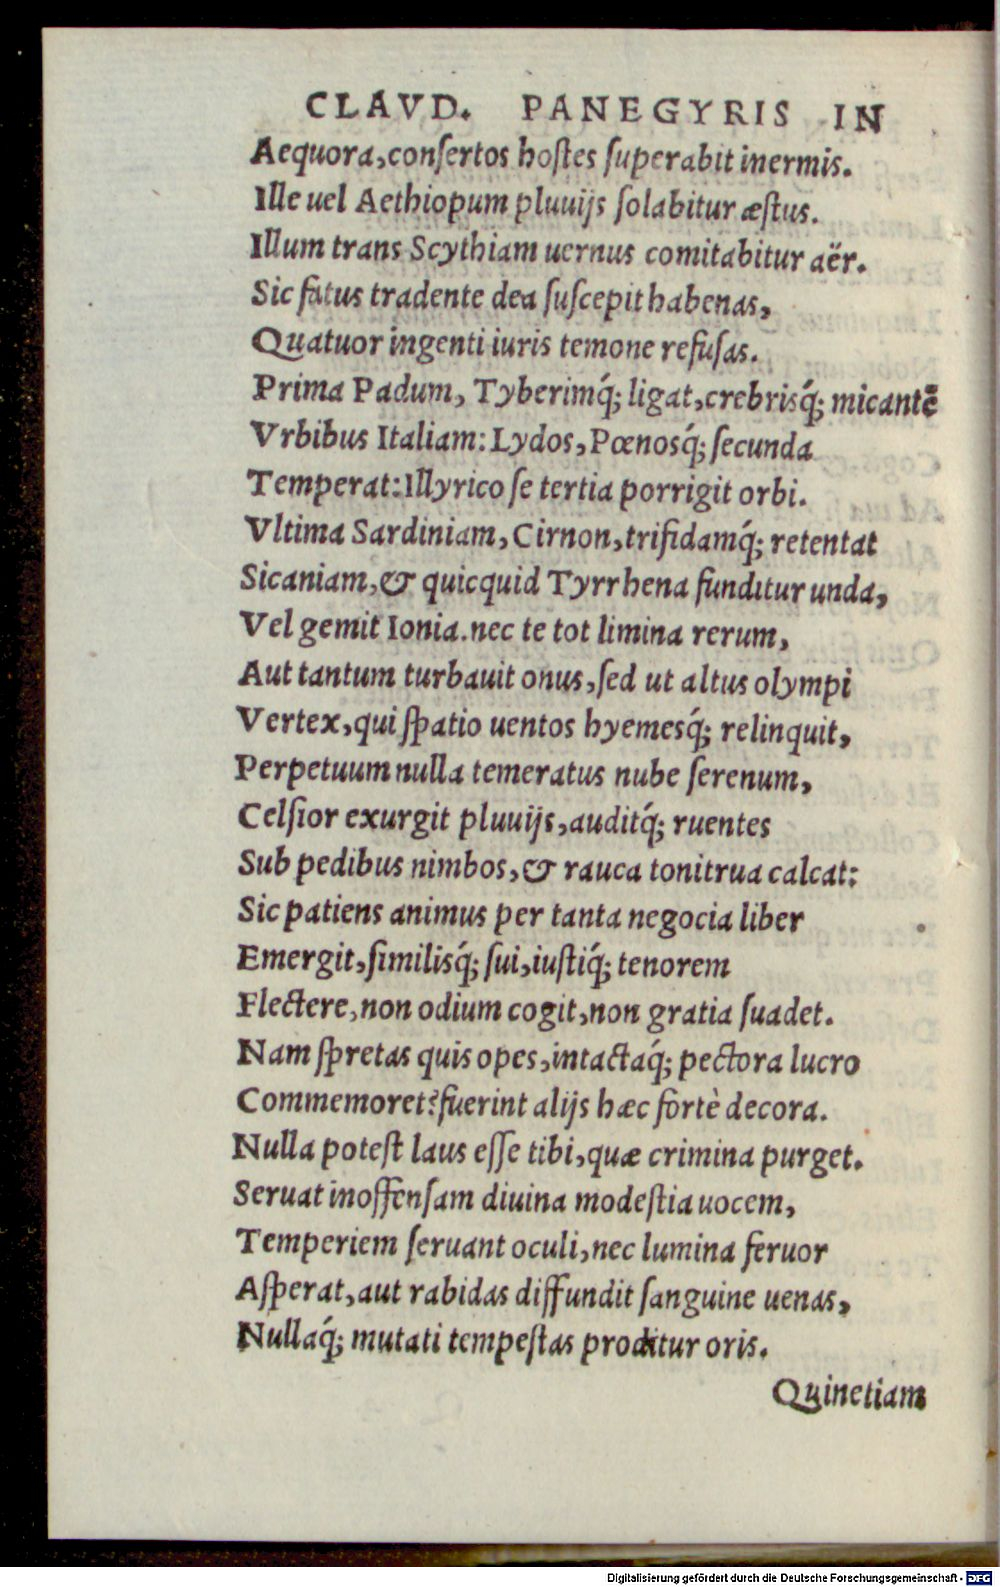 CLAVD. PANEGYRIS IN
Aequora,conſertos hoſtes ſuperabit inermis.
Ille uel Aethiopum pluuijs ſolabitur æſtus.
Illum trans Scythiam uernus comitabitur aër.
Sic fatus tradente dea ſuſcepit habenas,
Quatuor ingenti iuris temone refuſas.
Prima Padum, Tyberimq́; ligat,crebrisq́; micantē
Vrbibus Italiam: Lydos,Pœnosq́; ſecunda
Temperat: Illyrico ſe tertia porrigit orbi.
Vltima Sardiniam,Cirnon,trifidamq́; retentat
Sicaniam,& quicquid Tyrrhena funditur unda,
Vel gemit Ionia.nec te tot limina rerum,
Aut tantum turbauit onus,ſed ut altus olympi
Vertex,qui ſpatio uentos hyemesq́; relinquit,
Perpetuum nulla temeratus nube ſerenum,
Celſior exurgit pluuijs,auditq́; ruentes
Sub pedibus nimbos,& rauca tonitrua calcat:
Sic patiens animus per tanta negocia liber
Emergit,ſimilisq́; ſui,iuſtiq́; tenorem
Flectere,non odium cogit,non gratia ſuadet.
Nam ſpretas quis opes,intactaq́; pectora lucro
Commemoret?fuerint alijs hæc fortè decora.
Nulla poteſt laus eſſe tibi,quæ crimina purget.
Seruat inoffenſam diuina modeſtia uocem,
Temperiem ſeruant oculi,nec lumina feruor
Aſperat,aut rabidas diffundit ſanguine uenas,
Nullaq́; mutati tempeſtas proditur oris.
Quinetiam
Digitalisierung gefördert durch die Deutsche Forschungsgemeinschaft - DFG